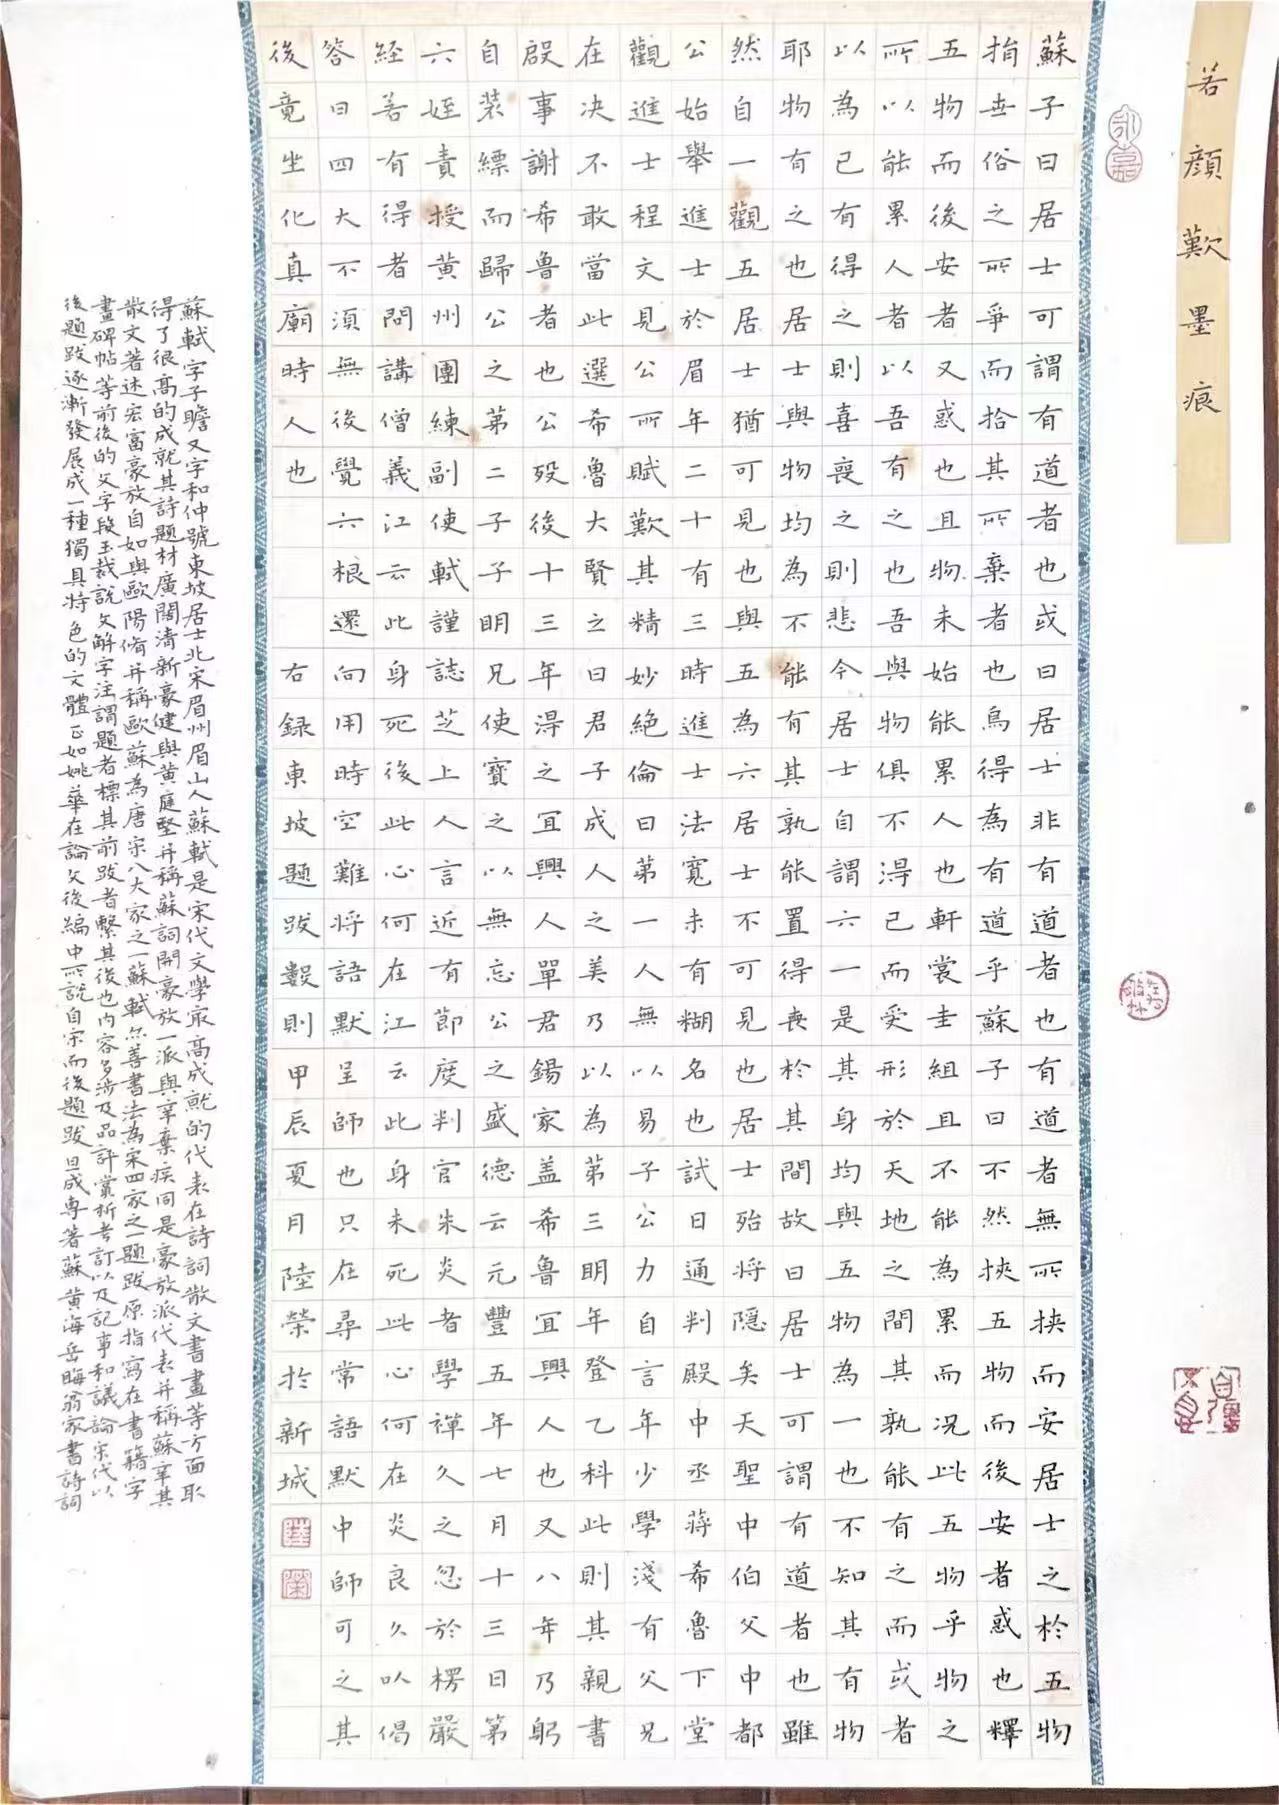 若顏歎墨痕
永嘉
蘇子曰居士可謂有道者也或曰居士非有道者也有道者無所挾而安居士之於五物
捐世俗之所爭而拾其所棄者也烏得為有道乎蘇子曰不然挾五物而後安者惑也釋
五物而後安者又惑也且物未始能累人也軒裳圭組且不能為累而况此五物乎物之
所以能累人者以吾有之也吾與物俱不得已而受形於天地之間其孰能有之而或者
以為己有得之則喜喪之則悲今居士自謂六一是其身均與五物為一也不知其有物
耶物有之也居士與物均為不能有其孰能置得喪於其間故曰居士可謂有道者也雖
然自一觀五居士猶可見也與五為六居士不可見也居士殆將隱矣天聖中伯父中都
公始舉進士於眉年二十有三時進士法寬未有糊名也試日通判殿中丞蔣希魯下堂
觀進士程文見公所賦歎其精妙絕倫曰第一人無以易子公力自言年少學淺有父兄
在决不敢當此選希魯大賢之曰君子成人之美乃以為第三明年登乙科此則其親書
啟事謝希魯者也公歿後十三年得之宜興人單君錫家盖希魯宜興人也又八年乃躬
自裝縹而歸公之第二子子明兄使寶之以無忘公之盛德云元豐五年七月十三日第
六姪責授黃州團練副使軾謹誌芝上人言近有節度判官朱炎者學禪久之忽於楞嚴
經若有得者問講僧義江云此身死後此心何在江云此身未死此心何在炎良久以偈
答曰四大不須無後覺六根還向用時空難將語默呈師也只在尋常語默中師可之其
後竟坐化真廟時人也 右錄東坡題跋數則甲辰夏月陸榮於新城
陸
榮
蘇軾字子瞻又字和仲號東坡居士北宋眉州眉山人蘇軾是宋代文學最高成就的代表在詩詞散文書畫等方面取
得了很高的成就其詩題材廣闊清新豪健與黃庭堅并稱蘇詞開豪放一派與辛棄疾同是豪放派代表并稱蘇辛其
散文著述宏富豪放自如與歐陽脩并稱歐蘇為唐宋八大家之一蘇軾亦善書法為宋四家之一題跋原指寫在書籍字
畫碑帖等前後的文字段玉裁說文解字注謂題者標其前跋者繫其後也內容多涉及品評賞析考訂以及記事和議論宋代以
後題跋逐漸發展成一種獨具特色的文體正如姚華在論文後編中所說自宋而後題跋旦成專著蘇黃海岳晦翁家書詩詞